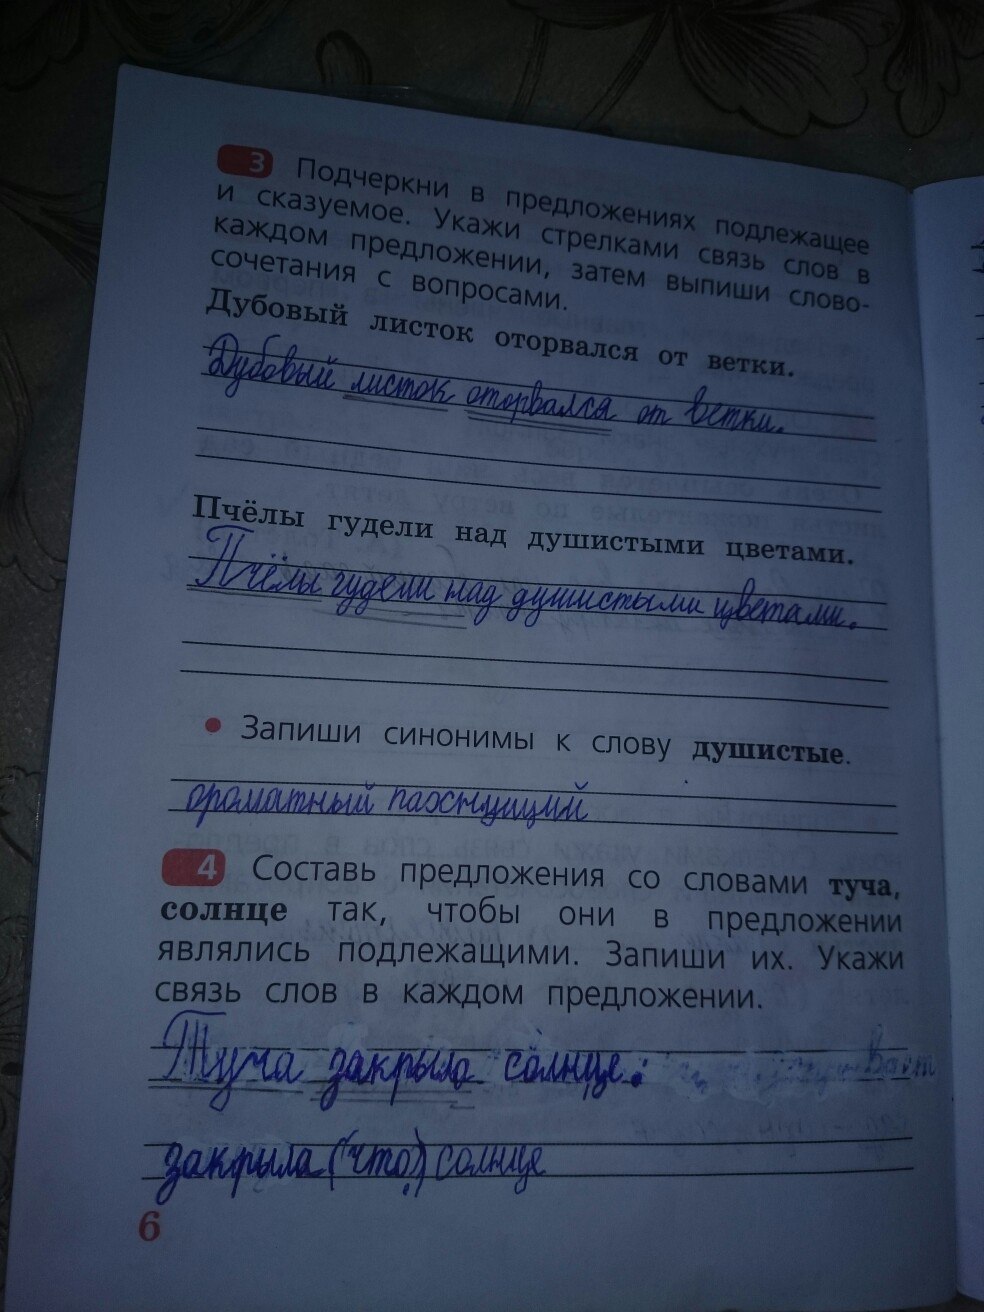 3 Подчеркни в предложениях подлежащее
и сказуемое. Укажи стрелками связь слов в
каждом предложении, затем выпиши слово-
сочетания с вопросами.
Дубовый листок оторвался от ветки.
Дубовый листок оторвался от ветки.
Пчёлы гудели над душистыми цветами.
Пчёлы гудели над душистыми цветами.
• Запиши синонимы к слову душистые.
ароматный пахнущий
4 Составь предложения со словами туча,
солнце так, чтобы они в предложении
являлись подлежащими. Запиши их. Укажи
связь слов в каждом предложении.
Туча закрыла солнце.
закрыла (что?) солнце
6